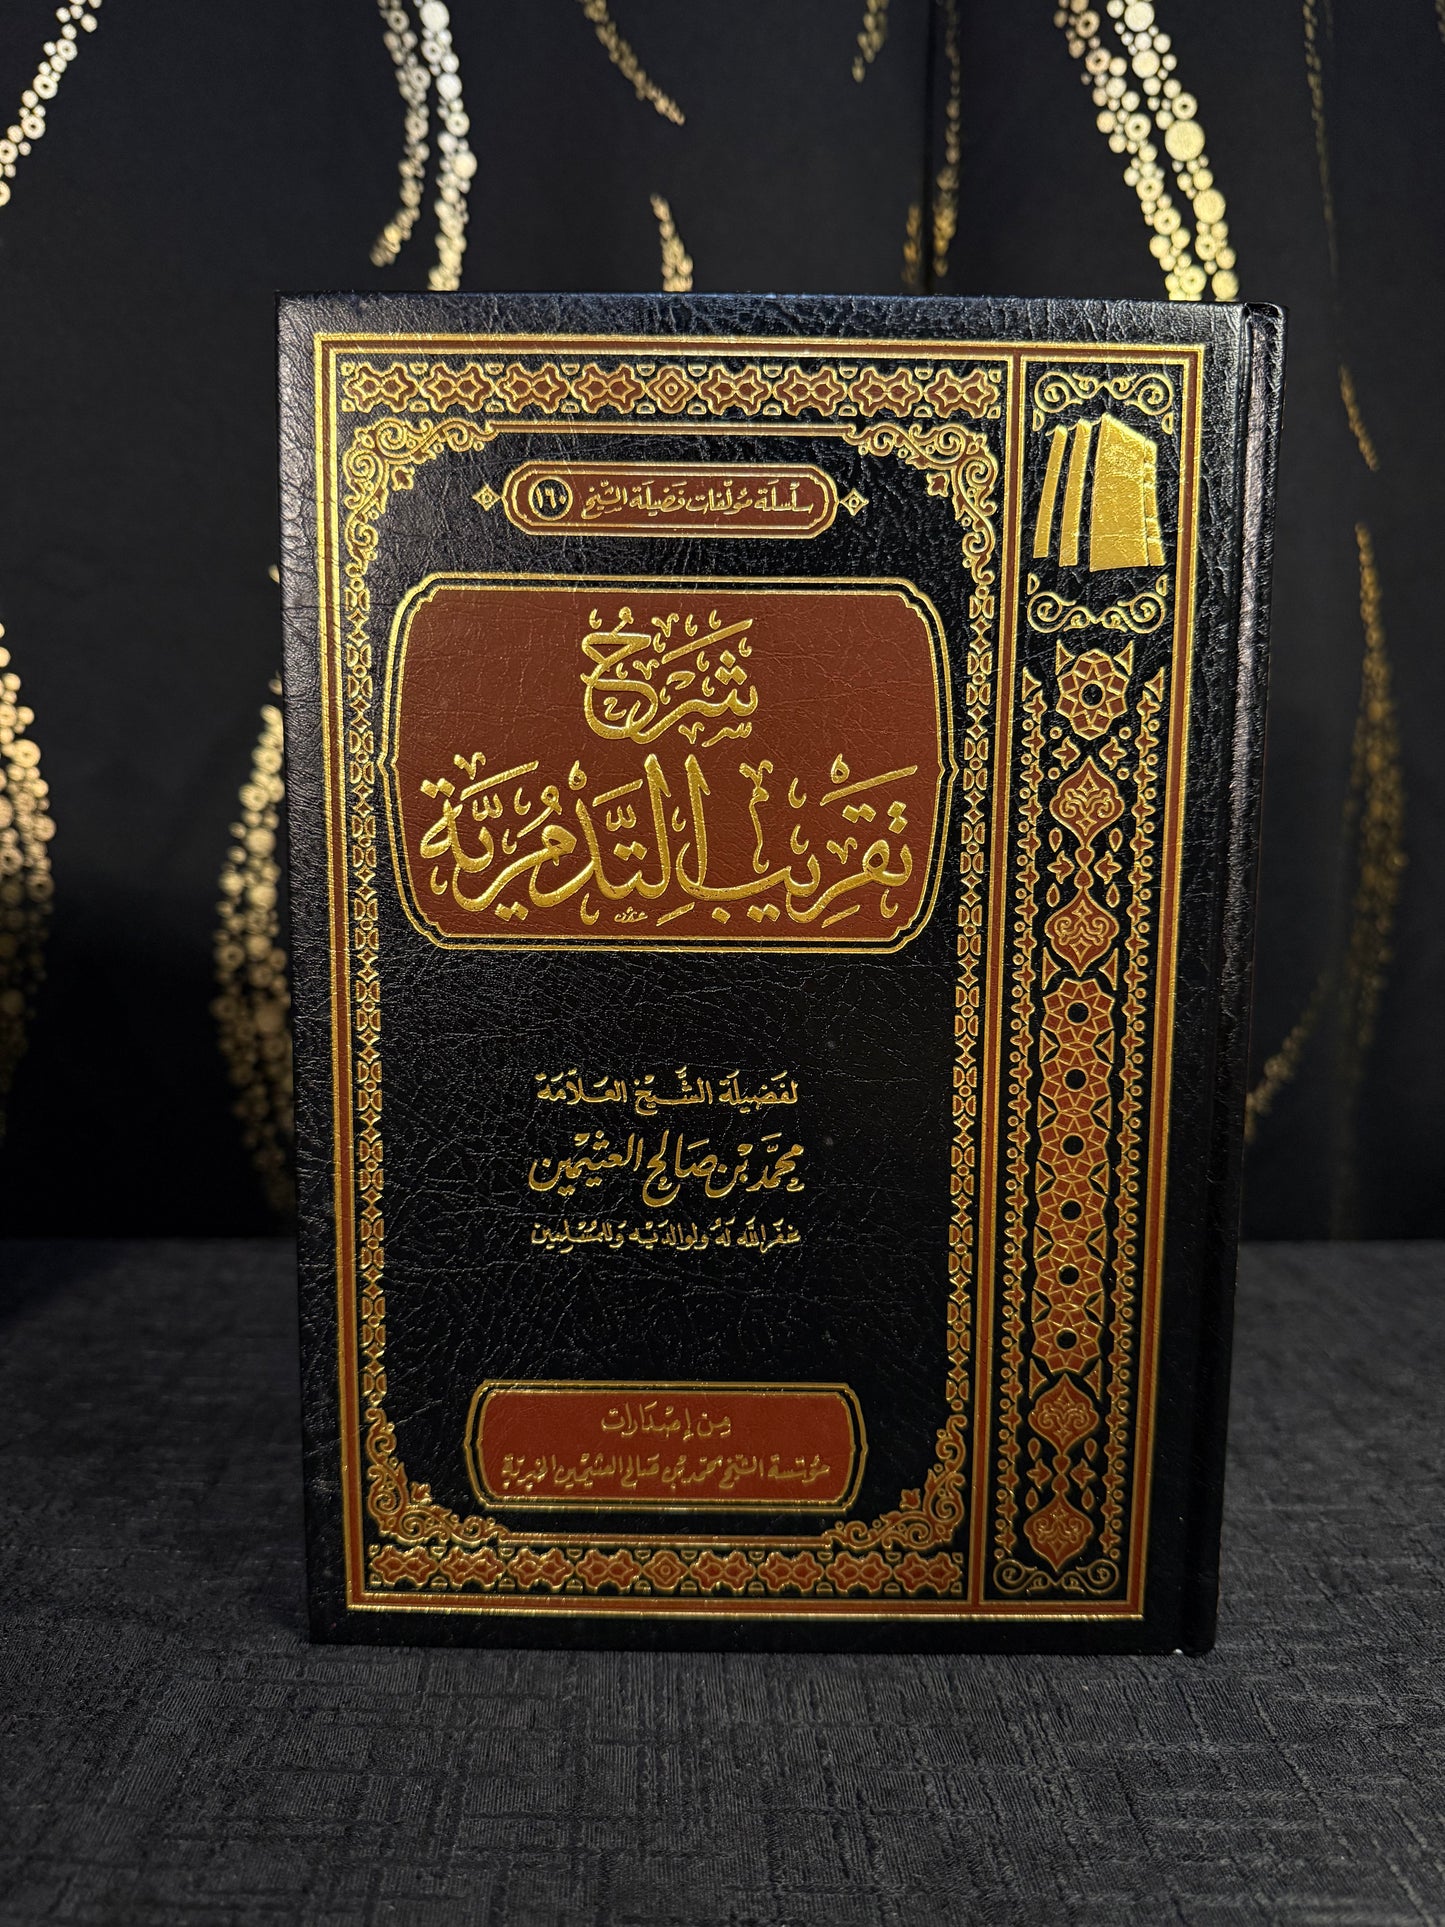 سلسلة مؤلفات فضيلة الشيخ ١٦٠
شَرْحُ
تَقْرِيبِ التَّدْمُرِيَّة
لفضيلة الشيخ العلامة
محمد بن صالح العثيمين
غفر الله له ولوالديه وللمسلمين
من إصدارات
مؤسسة الشيخ محمد بن صالح العثيمين الخيرية